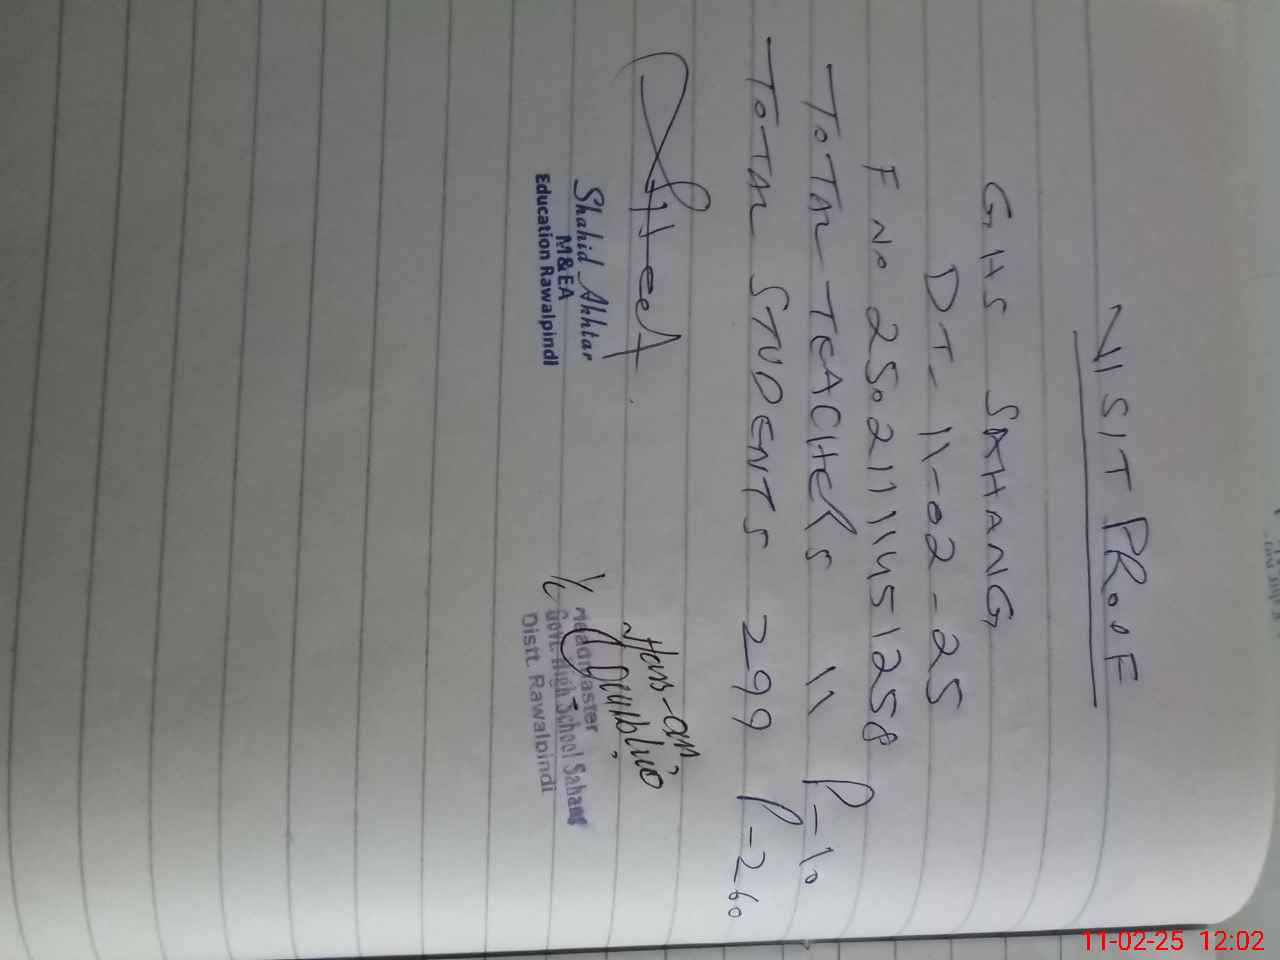 VISIT PROOF
GHS SAHANG
DT- 11-02-25
F No 250211114451258
TOTAL TEACHERS 11 P-10
TOTAL STUDENTS 299 P-260
Shahid Akhtar
M&EA
Education Rawalpindi
I/C
Headmaster
Govt. High School Sahang
Distt. Rawalpindi
11-02-25 12:02